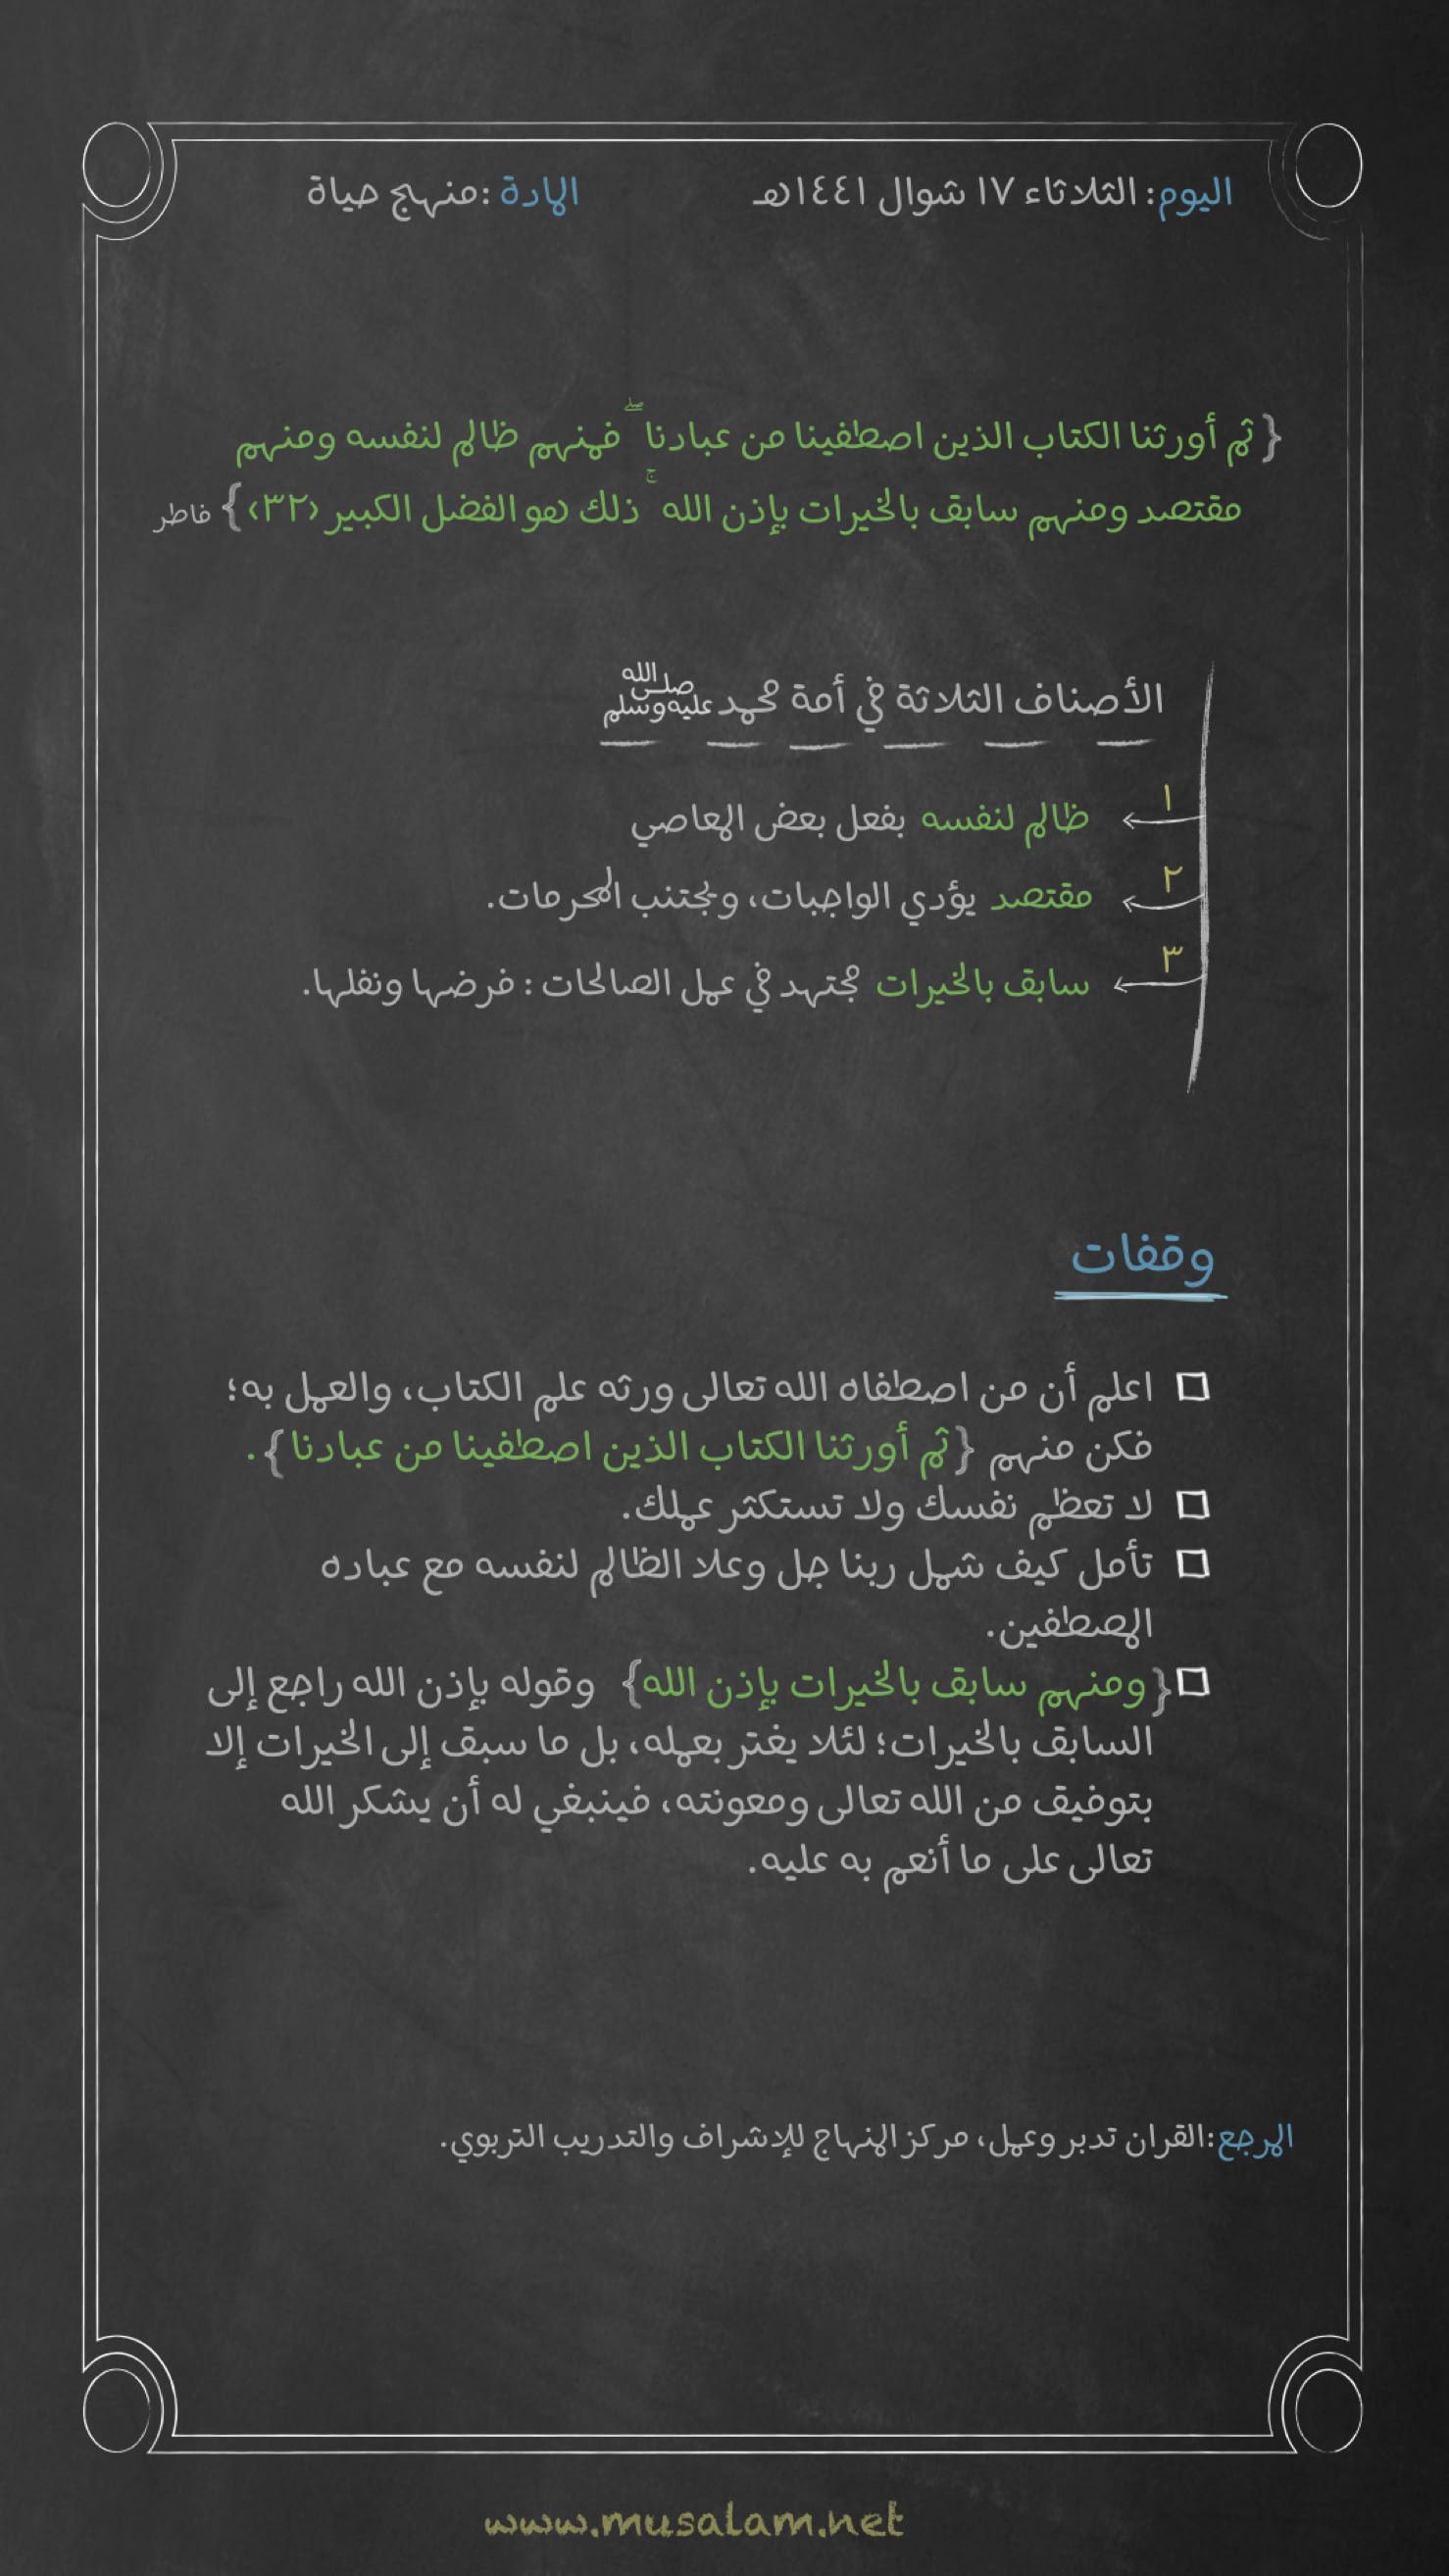 اليوم: الثلاثاء ١٧ شوال ١٤٤١هـ المادة :منهج حياة
{ثم أورثنا الكتاب الذين اصطفينا من عبادنا ۖ فمنهم ظالم لنفسه ومنهم
مقتصد ومنهم سابق بالخيرات بإذن الله ۚ ذلك هو الفضل الكبير ‹٣٢›} فاطر
الأصناف الثلاثة في أمة محمد ﷺ
١ ظالم لنفسه بفعل بعض المعاصي
٢ مقتصد يؤدي الواجبات، ويجتنب المحرمات.
٣ سابق بالخيرات مجتهد في عمل الصالحات : فرضها ونفلها.
وقفات
اعلم أن من اصطفاه الله تعالى ورثه علم الكتاب، والعمل به؛
فكن منهم {ثم أورثنا الكتاب الذين اصطفينا من عبادنا}.
لا تعظم نفسك ولا تستكثر عملك.
تأمل كيف شمل ربنا جل وعلا الظالم لنفسه مع عباده
المصطفين.
{ومنهم سابق بالخيرات بإذن الله} وقوله بإذن الله راجع إلى
السابق بالخيرات؛ لئلا يغتر بعمله، بل ما سبق إلى الخيرات إلا
بتوفيق من الله تعالى ومعونته، فينبغي له أن يشكر الله
تعالى على ما أنعم به عليه.
المرجع:القران تدبر وعمل، مركز المنهاج للإشراف والتدريب التربوي.
www.musalam.net